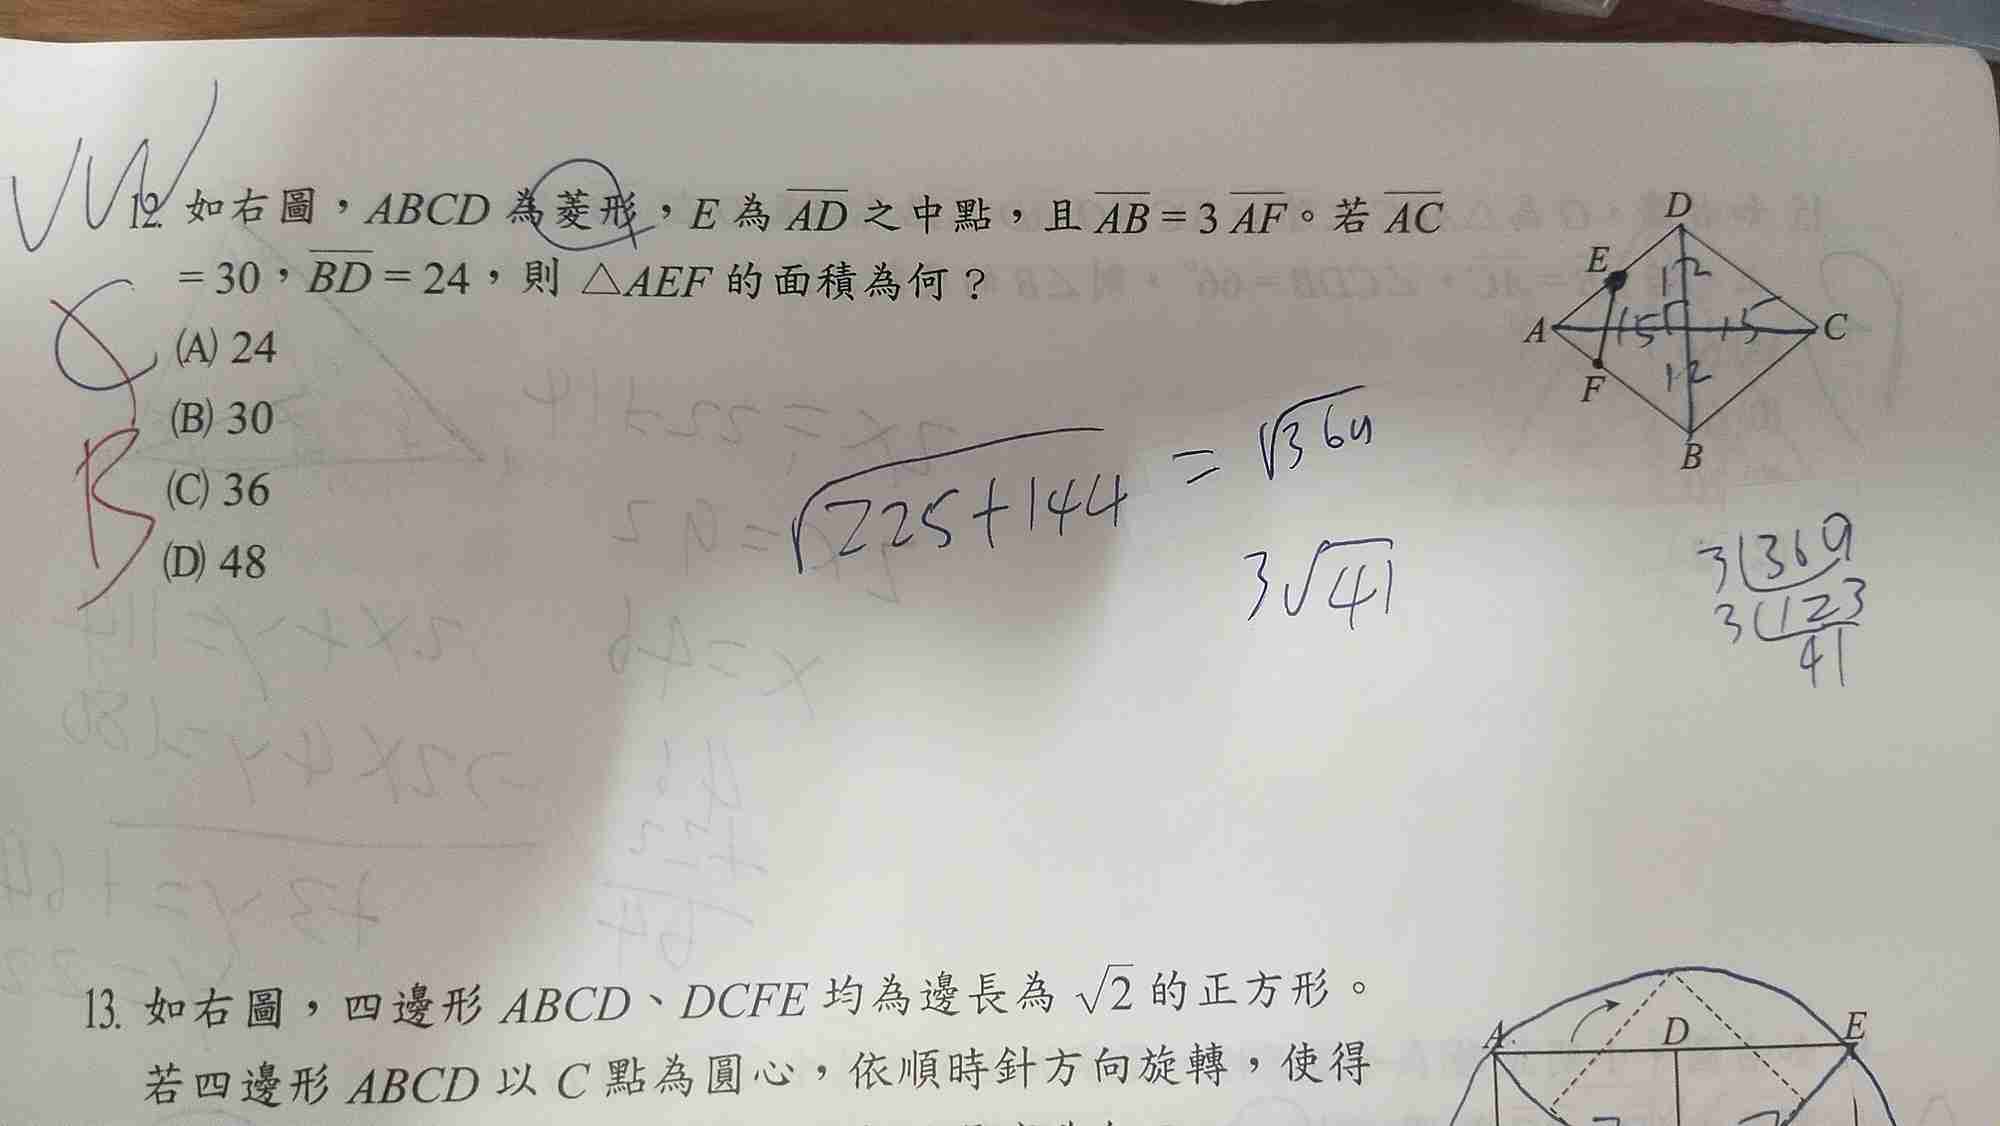 12. 如右圖，ABCD 為菱形，E 為 AD 之中點，且 AB = 3 AF。若 AC
= 30，BD = 24，則 △AEF 的面積為何？
(A) 24
(B) 30
(C) 36
(D) 48
C
B
D
E
A
C
F
B
12
15
15
12
√225+144 = √369
3√41
3 369
3 123
41
13. 如右圖，四邊形 ABCD、DCFE 均為邊長為 √2 的正方形。
若四邊形 ABCD 以 C 點為圓心，依順時針方向旋轉，使得
A
D
E